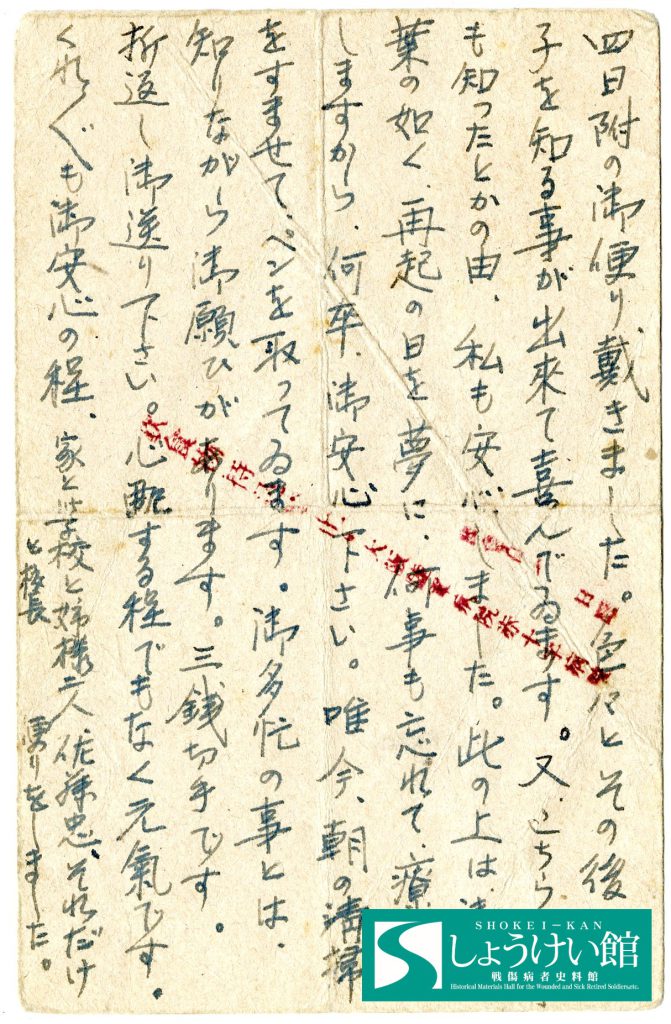 四日附の御便り、戴きました。色々とその後
子を知る事が出来て喜んでゐます。又、こちら
も知ったとかの由、私も安心しました。此の上は、
葉の如く、再起の日を夢に、何事も忘れて、療
しますから、何卒、御安心下さい。唯今、朝の清掃
をすませて、ペンを取ってゐます。御多忙の事とは、
知りながら御願ひがあります。三銭切手です。
折返し御送り下さい。心配する程でもなく元氣です。
くれ〴〵も御安心の程、家と学校と姉様二人佐藤忠、それだけ
と校長 便りをしました。
SHOKEI-KAN
しょうけい館
戦傷病者史料館
Historical Materials Hall for the Wounded and Sick Retired Soldiers,etc.